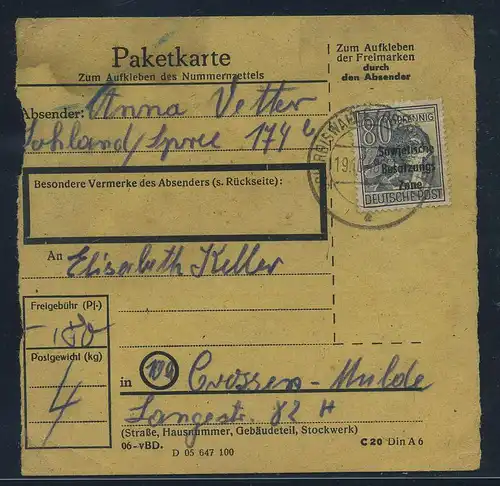 Paketkarte
Zum Aufkleben des Nummerzettels
Zum Aufkleben
der Freimarken
durch
den Absender
Absender: Anna Vetter
Sohland/Spree 174
80 PFENNIG
Sowjetische
Besatzungs
Zone
DEUTSCHE POST
Besondere Vermerke des Absenders (s. Rückseite):
An Elisabeth Keller
Freigebühr (Pf.)
Postgewicht (kg)
4
in Crossen-Mulde
Langestr. 82 H
(Straße, Hausnummer, Gebäudeteil, Stockwerk)
06-vBD.
C 20 Din A 6
D 05 647 100